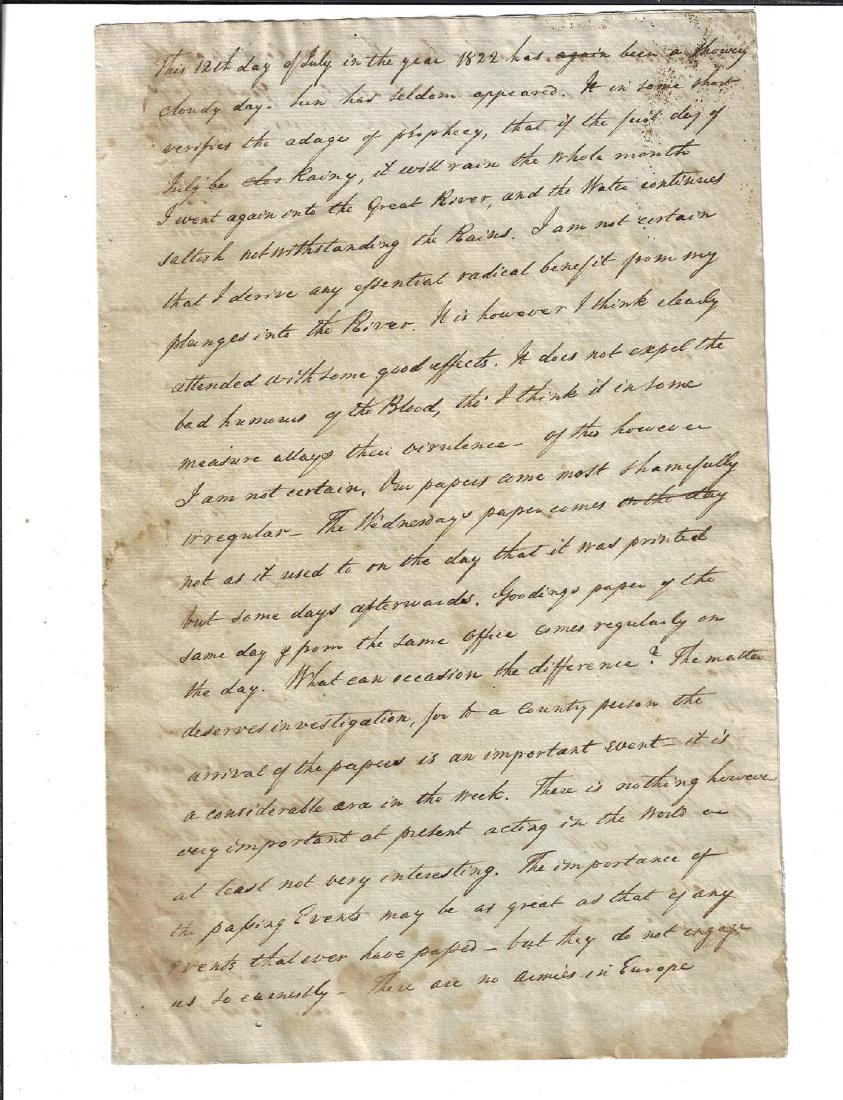 This 12th day of July in the year 1822 has again been a showery
cloudy day - Sun has seldom appeared. It in some short
verifies the adage of prophecy, that if the first day of
July be Rainy, it will rain the whole month
I went again into the Great River, and the Water continues
saltish notwithstanding the Rains. I am not certain
that I derive any essential radical benefit from my
plunges into the River. It is however I think clearly
attended with some good effects. It does not expel the
bad humours of the Blood, tho' I think it in some
measure allays their virulence - of this however
I am not certain. Our papers come most shamefully
irregular - The Wednesday's paper comes on the day
not as it used to on the day that it was printed
but some days afterwards. Goodings paper of the
same day & from the same office comes regularly on
the day. What can occasion the difference? The matter
deserves investigation, for to a County person the
arrival of the papers is an important event - it is
a considerable æra in the week. There is nothing however
very important at present acting in the World or
at least not very interesting. The importance of
the passing Events may be as great as that of any
events that ever have passed - but they do not engage
us so earnestly - There are no armies in Europe